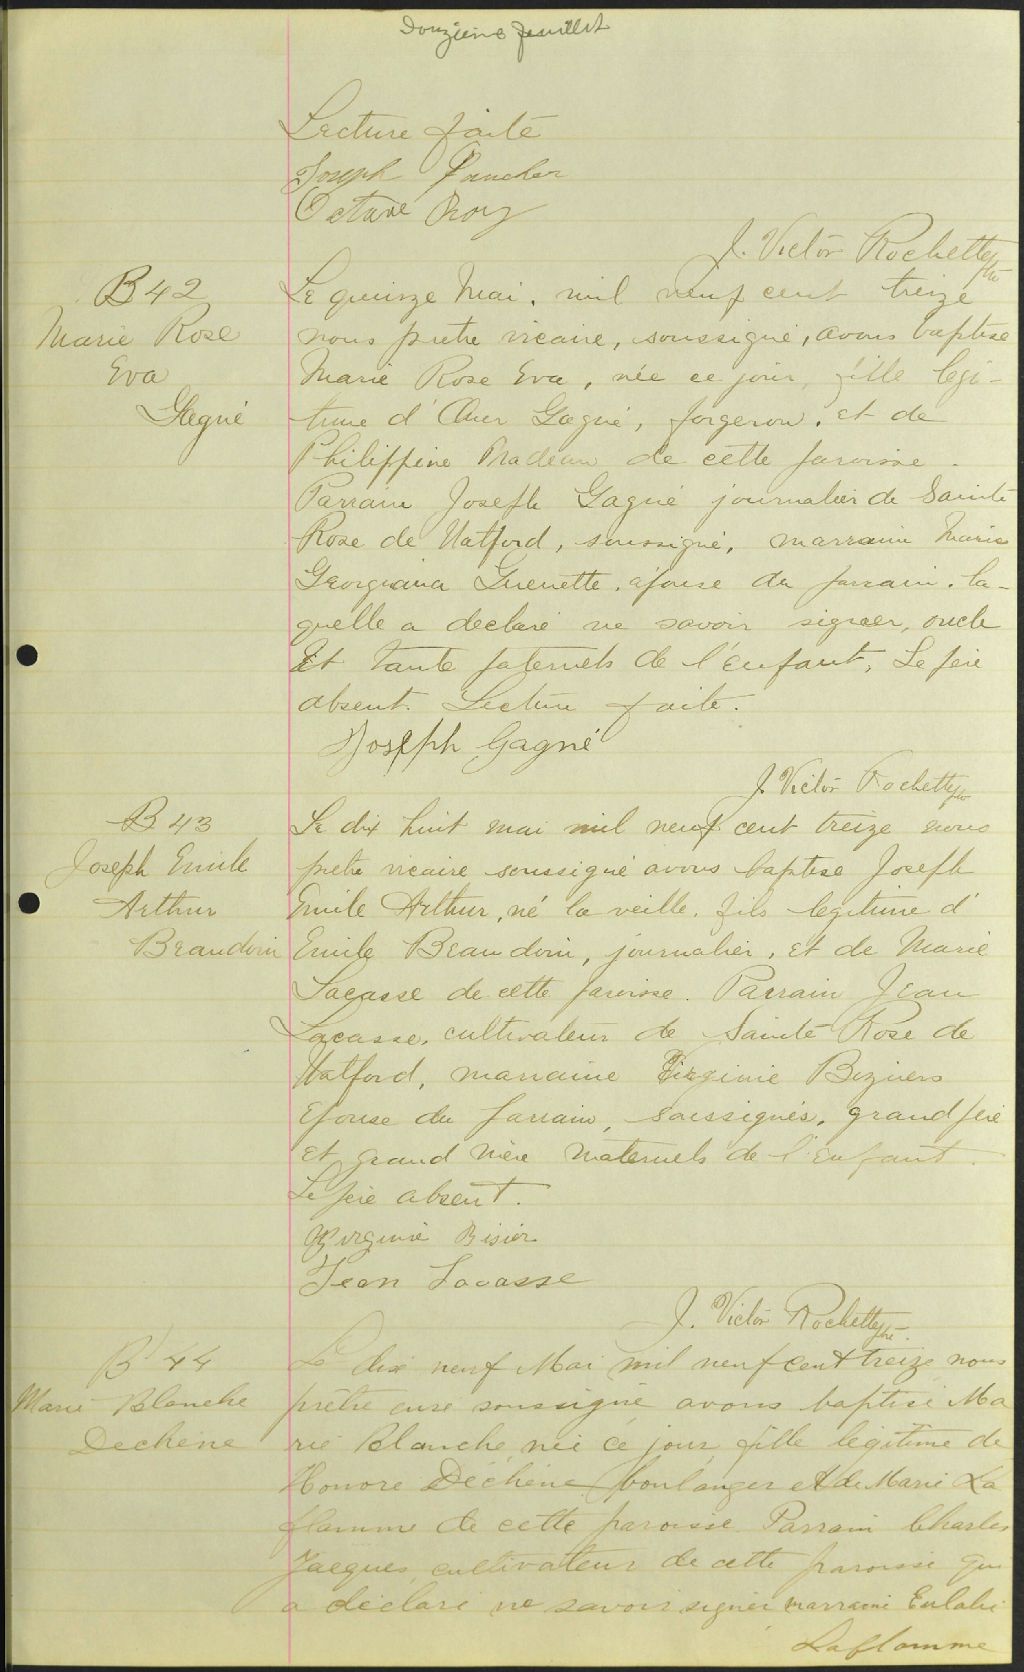 Douzième feuillet
Lecture faite
Joseph Faucher
Octave Roy
J. Victor Rochette ptre
B 42
Marie Rose
Eva
Gagné
Le quinze Mai, mil neuf cent treize
nous pretre vicaire, soussigné, avons baptise
Marie Rose Eva, née ce jour, fille legi-
time d' Gagné, forgeron, et de
Philippine Nadeau de cette paroisse.
Parrain Joseph Gagné journalier de Sainte
Rose de Watford, soussigné, marraine Marie
Georgiana Guenette, épouse du parrain, la-
quelle a declaré ne savoir signer, oncle
Et tante paternels de l'Enfant, Le père
absent. Lecture faite.
Joseph Gagné
J. Victor Rochette ptre
B 43
Joseph Emile
Arthur
Beaudoin
Le dix huit mai mil neuf cent treize nous
pretre vicaire soussigné avons baptise Joseph
Emile Arthur, né la veille, fils legitime d'
Emile Beaudoin, journalier, et de Marie
Lacasse de cette paroisse. Parrain Jean
Lacasse, cultivateur de Sainte Rose de
Watford, marraine Virginie Beziers
Epouse du parrain, soussignés, grand père
et grand mère maternels de l'Enfant.
Le père absent.
Virginie Bisier
Jean Lacasse
J. Victor Rochette ptre
B 44
Marie Blanche
Dechène
Le dix neuf Mai mil neuf cent treize nous
prêtre curé soussigné avons baptisé Ma
rie Blanche née ce jour fille légitime de
Honoré Déchène boulanger et de Marie La
flamme de cette paroisse Parrain Charles
Jacques, cultivateur de cette paroisse qui
a déclaré ne savoir signer marraine Eulalie
Laflamme